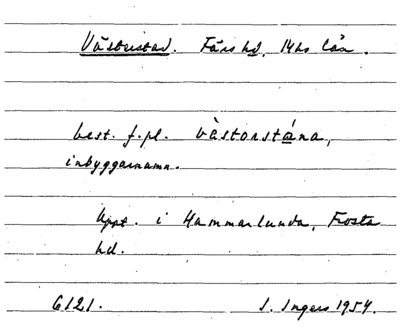 Västerstad. Färs hd, Mhs län.
best. f. pl. västorstána,
inbyggarnamn.
Uppt. i Hammarlunda, Frosta
hd.
6121. I. Ingers 1954.